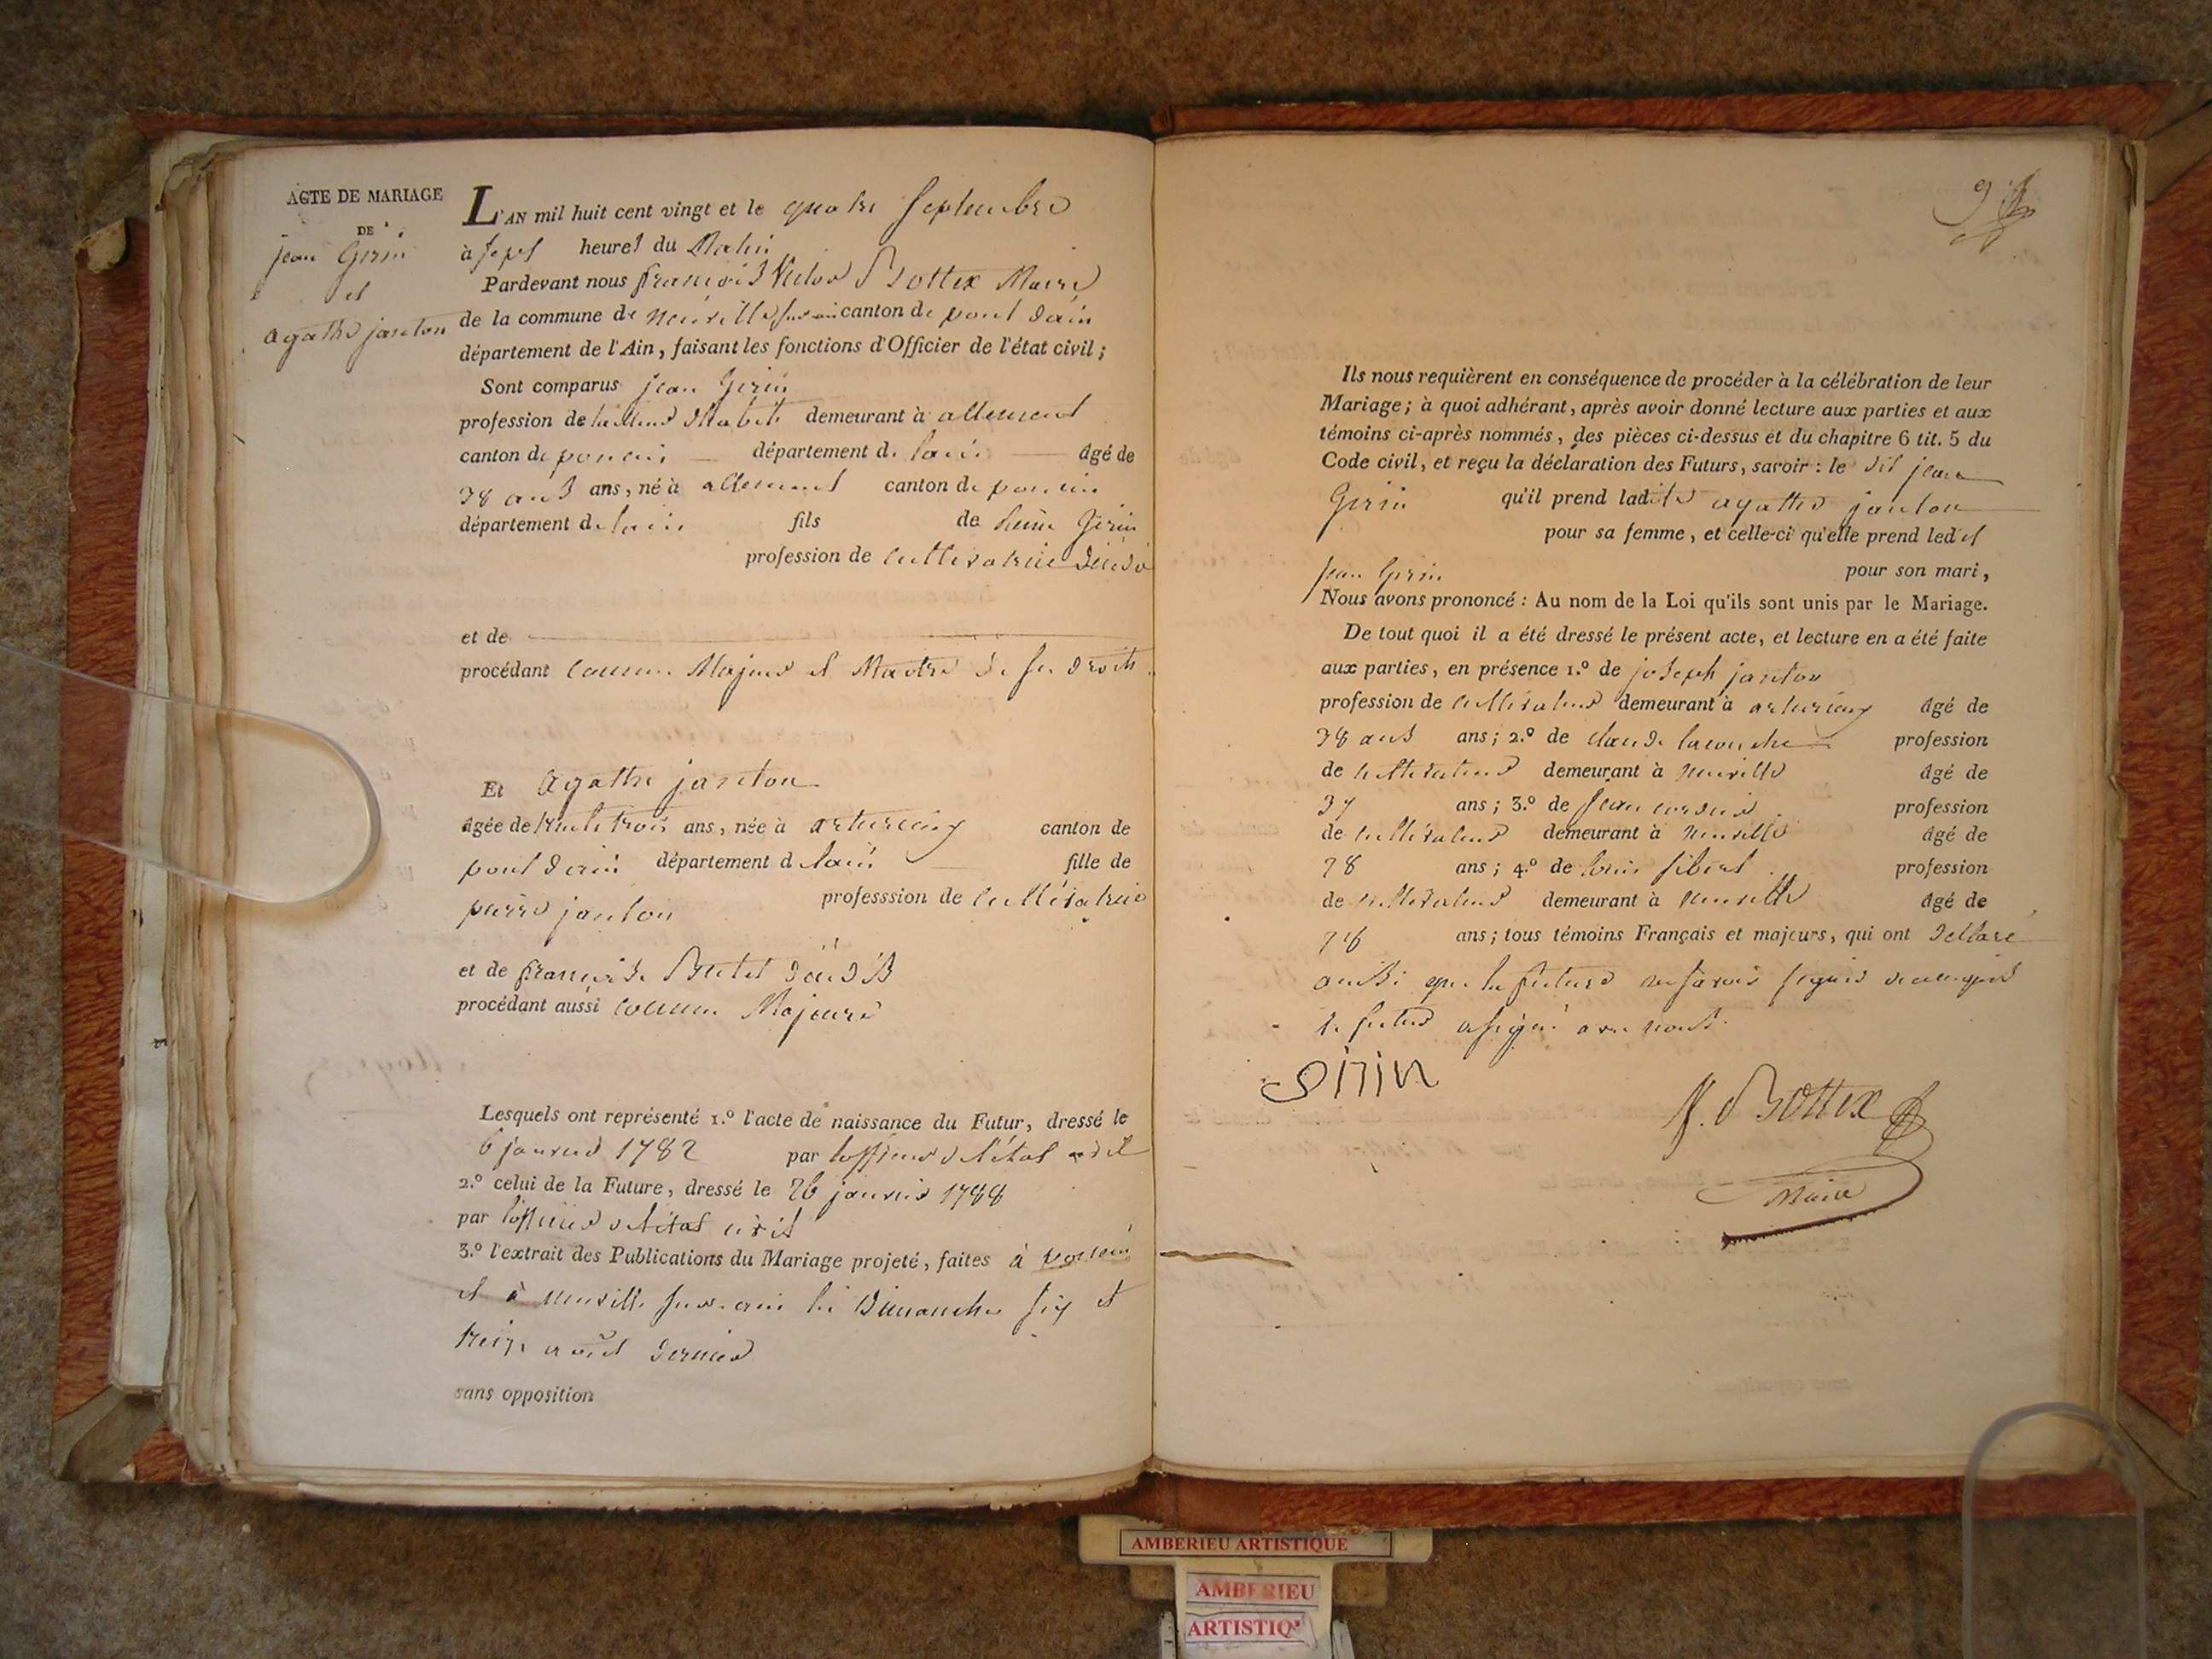 ACTE DE MARIAGE
DE
jean Girin
et
agathe janton
L'AN mil huit cent vingt et le quatre Septembre
à sept heures du Matin
Pardevant nous francois Victor Bottex Maire
de la commune de neuville sur ain canton de pont dain
département de l'Ain, faisant les fonctions d'Officier de l'état civil;
Sont comparus jean Girin
profession de tailleur dhabits demeurant à allement
canton de poncin département de lain âgé de
38 ans ans, né à allement canton de poncin
département de lain fils de Girin
profession de cultivatrice
et de
procédant comme Majeur et Maitre de ses droits
Et agathe janton
âgée de trente trois ans, née à arturieux canton de
pont dain département d lain fille de
pierre janton professsion de cultivatrice
et de francoise décédés
procédant aussi comme Majeure
Lesquels ont représenté 1.º l'acte de naissance du Futur, dressé le
6 janvier 1782 par lofficier de létat civil
2.º celui de la Future, dressé le 26 janvier 1788
par lofficier de létat civil
3.º l'extrait des Publications du Mariage projeté, faites à poncin
et à neuville sur ain les Dimanches six et
treize août dernier
sans opposition
Ils nous requièrent en conséquence de procéder à la célébration de leur
Mariage; à quoi adhérant, après avoir donné lecture aux parties et aux
témoins ci-après nommés, des pièces ci-dessus et du chapitre 6 tit. 5 du
Code civil, et reçu la déclaration des Futurs, savoir: le dit jean
Girin qu'il prend ladite agathe janton
pour sa femme, et celle-ci qu'elle prend ledit
jean Girin pour son mari,
Nous avons prononcé: Au nom de la Loi qu'ils sont unis par le Mariage.
De tout quoi il a été dressé le présent acte, et lecture en a été faite
aux parties, en présence 1.º de joseph janton
profession de cultivateur demeurant à arturieux âgé de
38 ans ans; 2.º de claude profession
de cultivateur demeurant à neuville âgé de
37 ans; 3.º de jean profession
de cultivateur demeurant à neuville âgé de
78 ans; 4.º de louis sibert profession
de cultivateur demeurant à neuville âgé de
76 ans; tous témoins Français et majeurs, qui ont déclaré
ainsi que la future ne savoir signer
le futur a signé avec nous.
Girin
f. Bottex
Maire
AMBERIEU ARTISTIQUE
AMBERIEU
ARTISTIQ